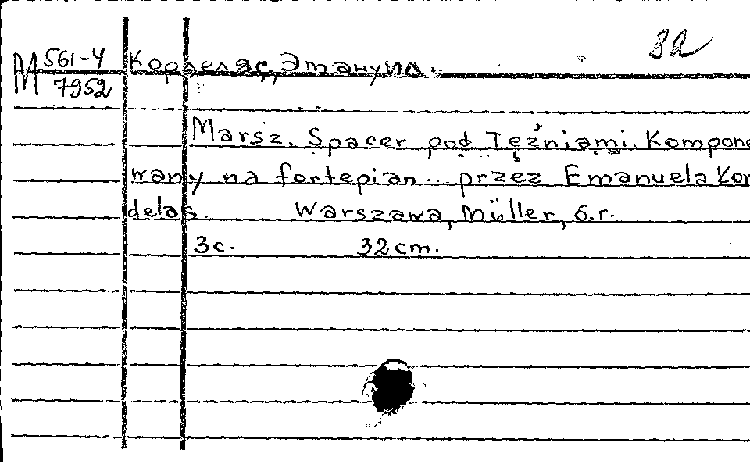 За
М 561-4
7952
Корделяс, Эмануил.
Marsz. Spacer pod Tężniami. Kompono
wany na fortepian.. przez Emanuela Kor
delas. Warszawa, Müller, б.г.
3с. 32cm.